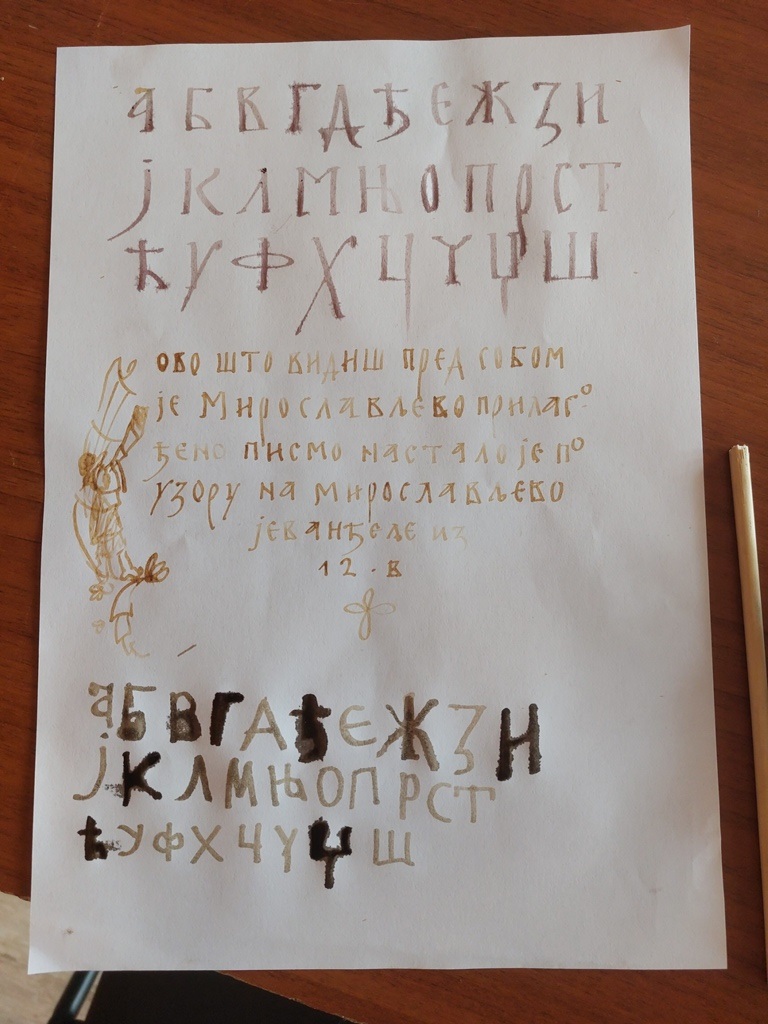 А Б В Г Д Ђ Є Ж З И
Ј К Л М Њ О П Р С Т
Ћ У Ф Х Ц Ч Џ Ш
ОВО ШТО ВИДИШ ПРЕД СОБОМ
ЈЕ МИРОСЛАВЉЕВО ПРИЛАГО
ЂЕНО ПИСМО НАСТАЛО ЈЕ ПО
УЗОРУ НА МИРОСЛАВЉЕВО
ЈЕВАНЂЕЉЕ ИЗ
12.В
А Б В Г Д Ђ Є Ж З И
Ј К Л М Њ О П Р С Т
Ћ У Ф Х Ц Ч Џ Ш